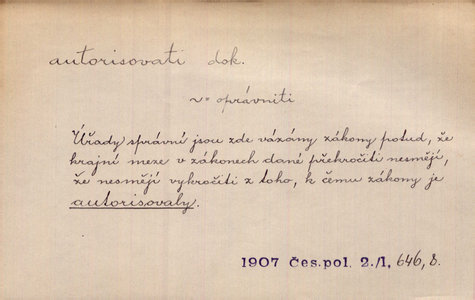 autorisovati dok.
v= oprávniti
Úřady správní jsou zde vázány zákony potud, že
krajní meze v zákonech dané překročiti nesmějí,
že nesmějí vykročiti z toho, k čemu zákony je
autorisovaly.
1907 Čes.pol. 2./1, 646, 8.